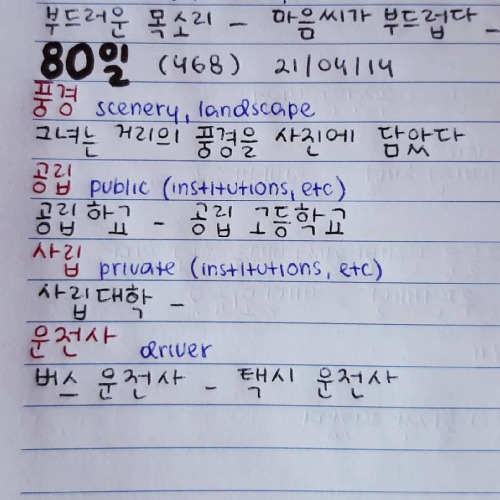 부드러운 목소리 - 마음씨가 부드럽다 -
80일 (468) 21/04/14
풍경 scenery, landscape
그녀는 거리의 풍경을 사진에 담았다
공립 public (institutions, etc)
공립 학교 - 공립 고등학교
사립 private (institutions, etc)
사립대학 -
운전사 driver
버스 운전사 - 택시 운전사